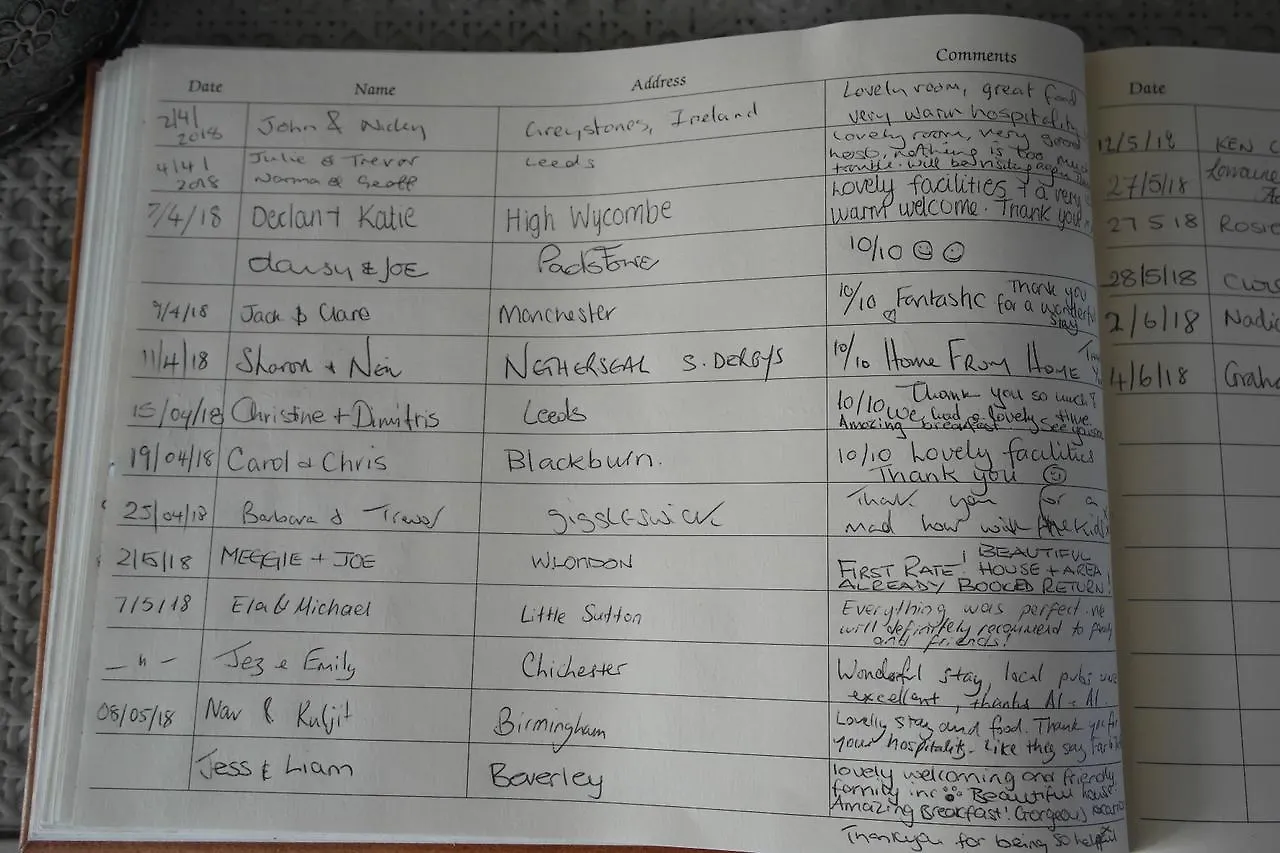 Date Name Address Comments
2/4/ 2018 John & Nicky Greystones, Ireland Lovely room, great food
very warm hospitality
4/4/ 2018 Julie & Trevor Leeds Lovely room, very good
Norma & Geoff host, nothing is too much
trouble. will be visiting again
7/4/18 Declan + Katie High Wycombe Lovely facilities + a very
warm welcome. Thank you!
daisy & JOE Padstowe 10/10 ☺ ☺
9/4/18 Jack & Clare Manchester 10/10 Fantastic Thank you
for a wonderful
stay
11/4/18 Sharon + Neil NETHERSEAL S. DERBYS 10/10 HOME FROM HOME
15/04/18 Christine + Dimitris Leeds 10/10 Thank you so much!
We had a lovely time.
Amazing breakfast
19/04/18 Carol & Chris Blackburn. 10/10 Lovely facilities
Thank you ☺
25/04/18 Barbara & Trevor giggleswick Thank you for a
mad hour with the kids
2/5/18 MEGGIE + JOE W LONDON FIRST RATE! BEAUTIFUL
HOUSE + AREA!
ALREADY BOOKED RETURN!
7/5/18 Ela & Michael Little Sutton Everything was perfect. we
will definitely recommend to family
and friends!
— " — Jez & Emily Chichester Wonderful stay, local pubs were
excellent, thanks Al + Al.
08/05/18 Nav & Kuljit Birmingham Lovely stay and food. Thank you for
your hospitality. Like they say
Jess & Liam Beverley lovely welcoming and friendly
family inc Beautiful house
Amazing Breakfast! Gorgeous location
Thankyou for being so helpful
Date
12/5/18 KEN C
27/5/18 Lorraine
27 5 18 Rosie
28/5/18
2/6/18 Nadi
4/6/18 Graha